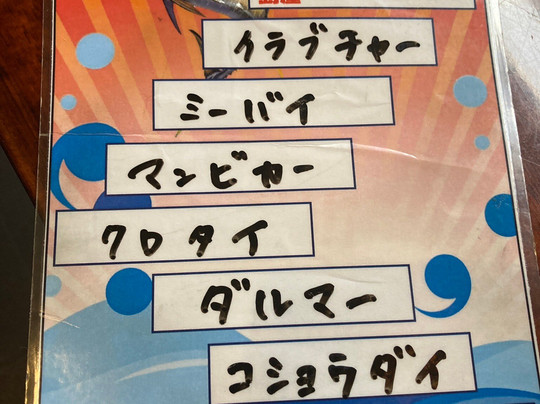 イラブチャー
ミーバイ
マンビカー
クロタイ
ダルマー
コショウダイ